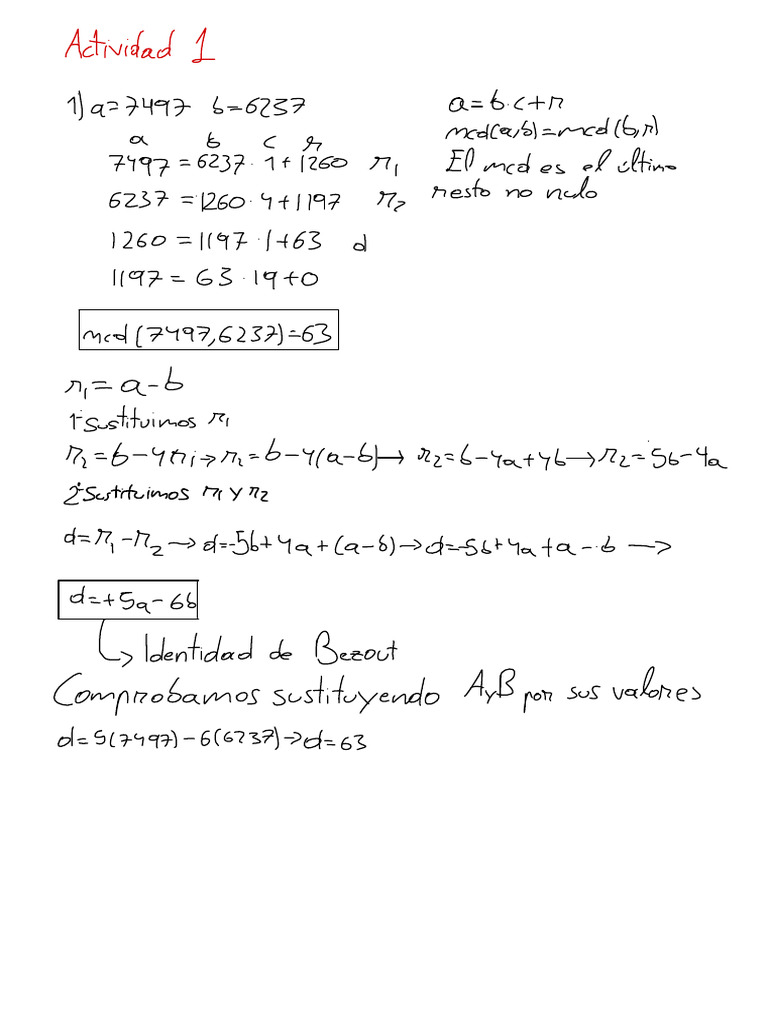 Actividad 1
1) a=7497 b=6237
a b c r
7497 = 6237 · 1 + 1260 r₁
6237 = 1260 · 4 + 1197 r₂
1260 = 1197 · 1 + 63 d
1197 = 63 · 19 + 0
a = b · c + r
mcd(a,b) = mcd(b,r)
El mcd es el último
resto no nulo
mcd(7497,6237)=63
r₁ = a - b
1º Sustituimos r₁
r₂ = b - 4r₁ → r₂ = b - 4(a-b) → r₂ = b - 4a + 4b → r₂ = 5b - 4a
2º Sustituimos r₁ y r₂
d = r₁ - r₂ → d = -5b + 4a + (a-b) → d = -5b + 4a + a - b →
d = +5a - 6b
↳ Identidad de Bezout
Comprobamos sustituyendo A y B por sus valores
d = 5(7497) - 6(6237) → d = 63